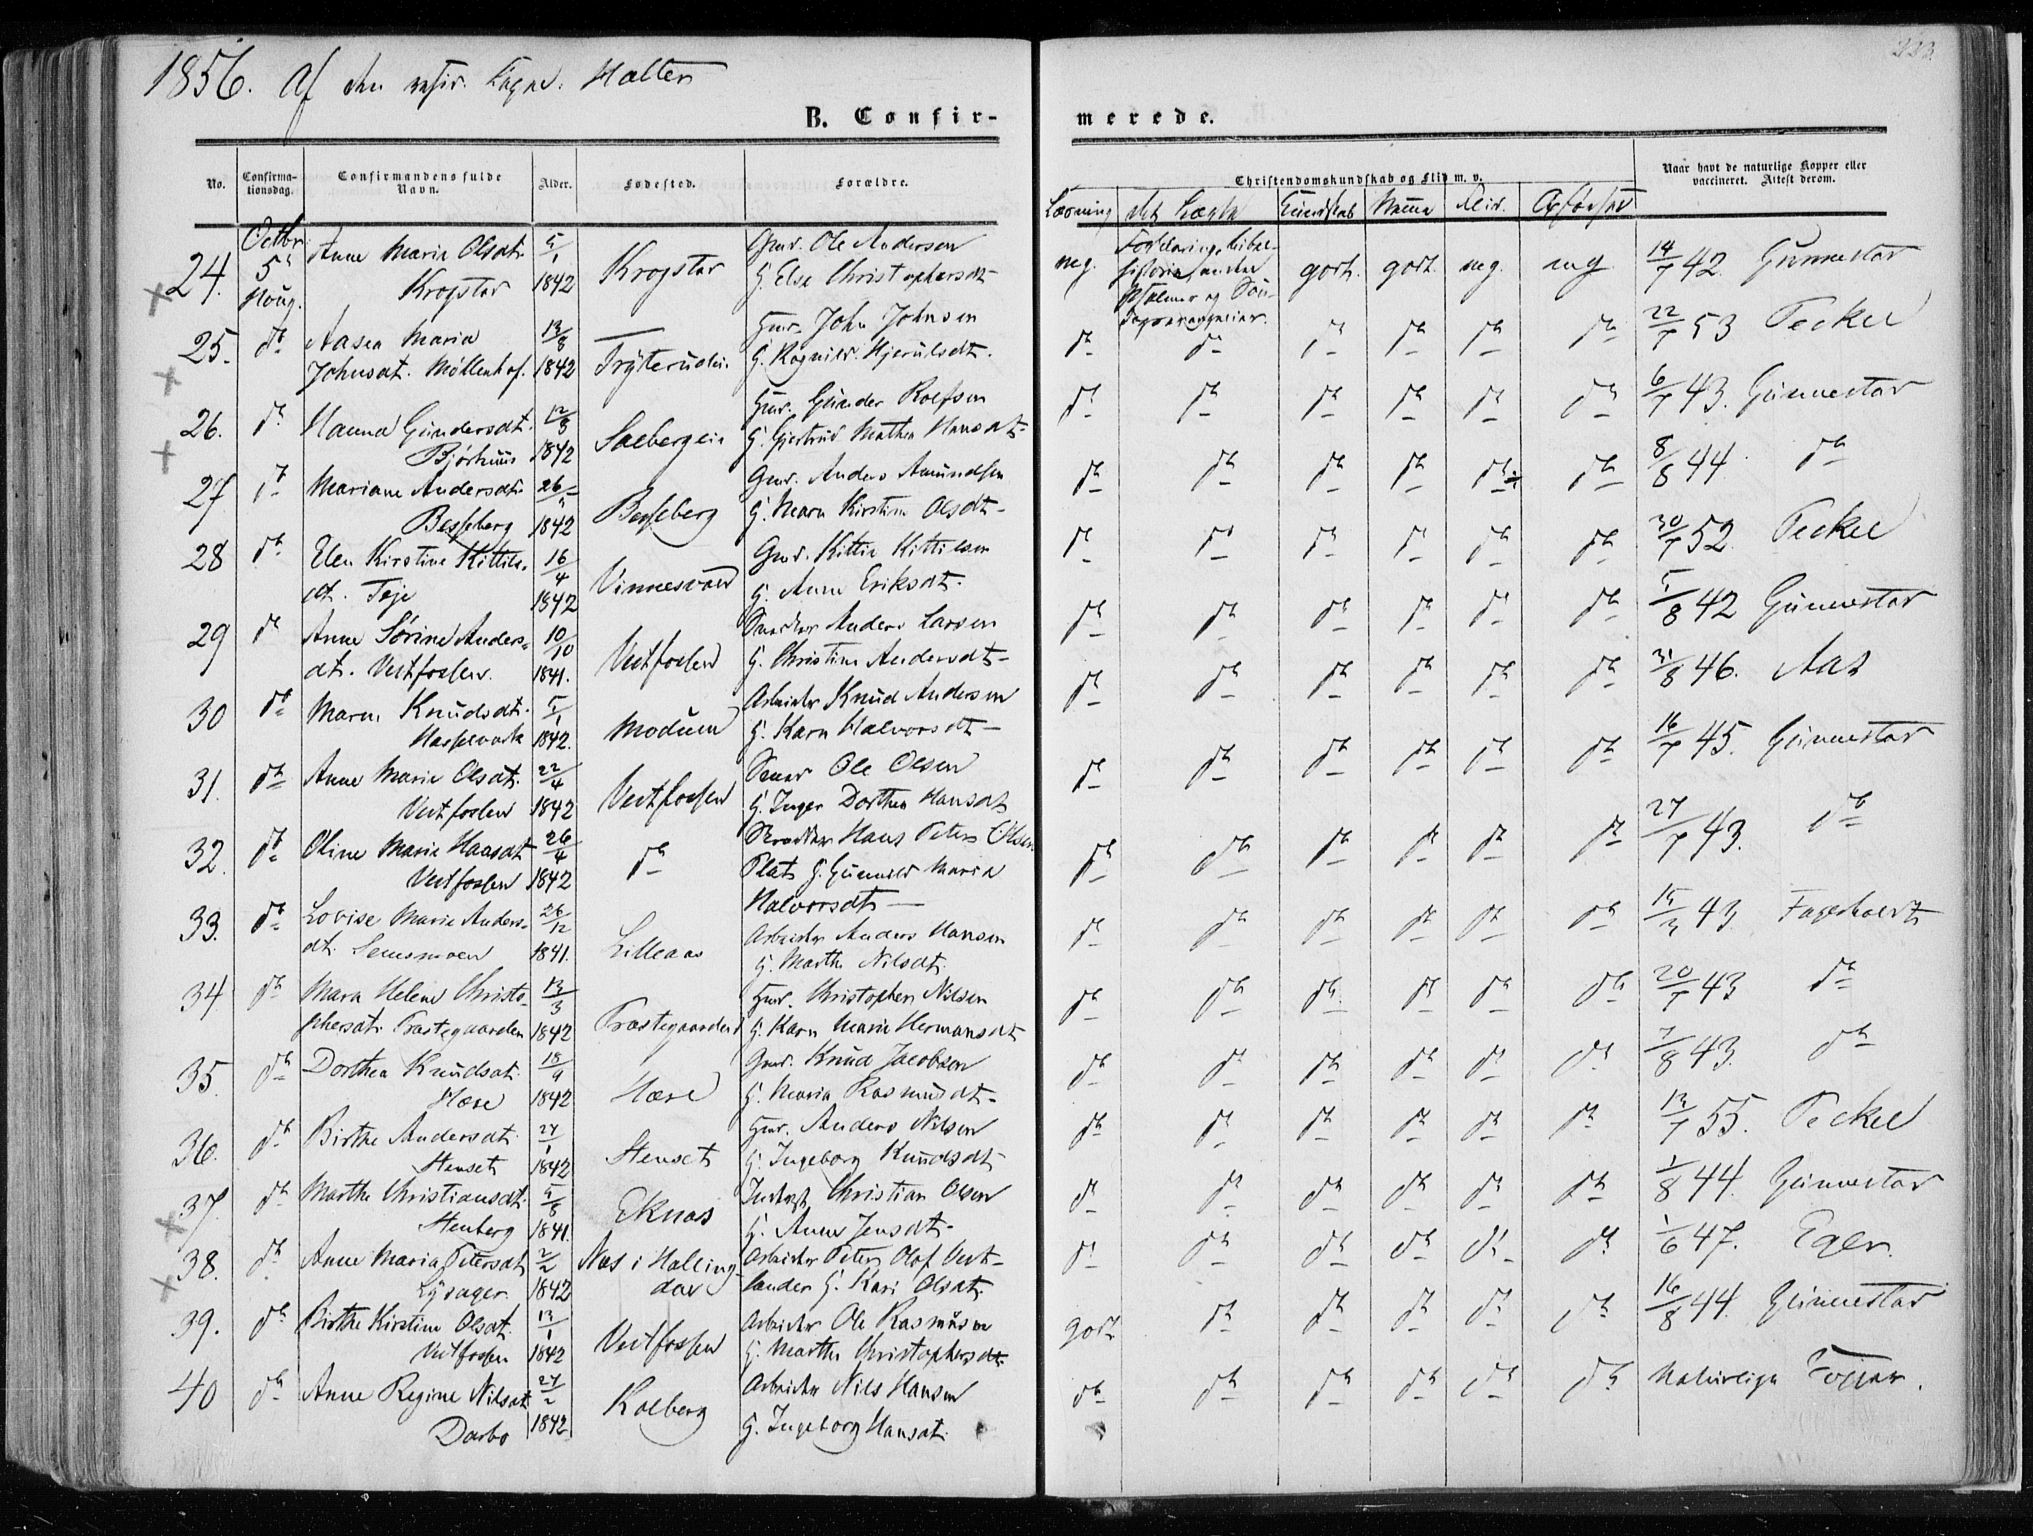 1856. Af den Sogn. Halter
223
B. Confir-
merede.
No.
Confirma-
tionsdag.
Confirmandens fulde
Navn.
Alder.
Fødested.
Forældre.
Christendomskundskab og Flid m. v.
Naar havt de naturlige Kopper eller
vaccineret. Attest derom.
Læsning det Lægte Kundskab Nemme Flid. Opførsel
24. Octbr. 5te Houg. Anne Marie Olsdt. Krogstad 5/1 1842 Krogstad Gmd. Ole Andersen
G. Else Christophersdt- mg. Forklaring, Bibel-
historie, Psalmer og godt. godt. mg. mg 14/7 42. Gunnestad
25. dto Aasea Maria
Johnsdt. Møllenhof. 13/8 1842 Fryterudei. Hmd. John Johnsen
G. Ragnild Hjerulsdt. dto dto dto dto dto dto 22/7 53 Peckel
26. dto Hanna Gundersdt.
Bjørhuus 12/3 1842 Solbergeie Hmd. Gunder Rolfsen
G. Gjertrud Mathea Hansdt- dto dto dto dto dto dto 6/7 43. Gunnestad
27 dto Mariane Andersdt.
Besseberg 26/5 1842 Besseberg Gmd. Anders Amundsen
G. Maren Kirstine Olsdt- dto dto dto dto dto dto 8/8 44. dto
28 dto Elen Kirstine Kittils-
dt. Teje 16/4 1842 Vinnesvold Gmd. Kittil Kittilsen
G. Anne Eriksdt. dto dto dto dto dto dto 30/7 52. Peckel
29 dto Anne Sørine Anders-
dt. Vestfossen. 10/10 1841. Vestfossen Snedker Anders Larsen
G. Christine Andersdt- dto dto dto dto dto dto 5/8 42 Gunnestad
30 dto Maren Knudsdt.
Hasselvack 5/1 1842. Modum Arbeider Knud Andersen
G. Karn Halvorsdt- dto dto dto dto dto dto 31/8 46. Aas
31. dto Anne Marie Olsdt.
Vestfossen 22/4 1842 Vestfossen Ole Olsen
G. Inger Dorthea Hansdt dto dto dto dto dto dto 16/7 45. Gunnestad
32. dto Oline Marie Hansdt
Vestfossen 26/4 1842 dto Hans Peter Olsen
Plat G. Gunnild Maria
Halvorsdt- dto dto dto dto dto dto 27/7 43. dto
33. dto Lovise Marie Anders-
dt. Semsmoen 26/12 1841. Lilleaas Arbeider Anders Hansen
G. Marthe Nilsdt. dto dto dto dto dto dto 15/3 43. Fageholdt
34 dto Maren Helene Christo-
phersdt. Præstegaarden 13/3 1842 Præstegaarden Hmd. Christopher Nilsen
G. Karn Marie Hermansdt dto dto dto dto dto dto 20/7 43 dto
35. dto Dorthea Knudsdt.
Hære 18/9 1842 Hære Gmd. Knud Jacobsen
G. Maria Rasmusdt- dto dto dto dto dto dto 7/8 43. dto
36. dto Birthe Andersdt.
Stenset 27/1 1842 Stenset Hmd. Anders Nilsen
G. Ingeborg Knudsdt- dto dto dto dto dto dto 13/7 55. Peckel
37. dto Marthe Christiansdt.
Stenberg 5/8 1841. Eknæs Inderst Christian Olsen
G. Anne Jensdt- dto dto dto dto dto dto 1/8 44. Gunnestad
38. dto Anne Maria Petersdt
Lysager 2/2 1842 Næs i Halling-
dal Arbeider Peter Olof Vest-
lander G. Kari Olsdt. dto dto dto dto dto dto 1/6 47. Eger.
39. dto Birthe Kirstine Olsdt.
Vestfossen 13/1 1842 Vestfossen Arbeider Ole Rasmusen
G. Marthe Christophersdt- godt dto dto dto dto dto 16/8 44. Gunnestad
40 dto Anne Regine Nilsdt
Darbo 27/2 1842 Kolberg Arbeider Nils Hansen
G. Ingeborg Hansdt. dto dto dto dto dto dto Naturlige Kopper.